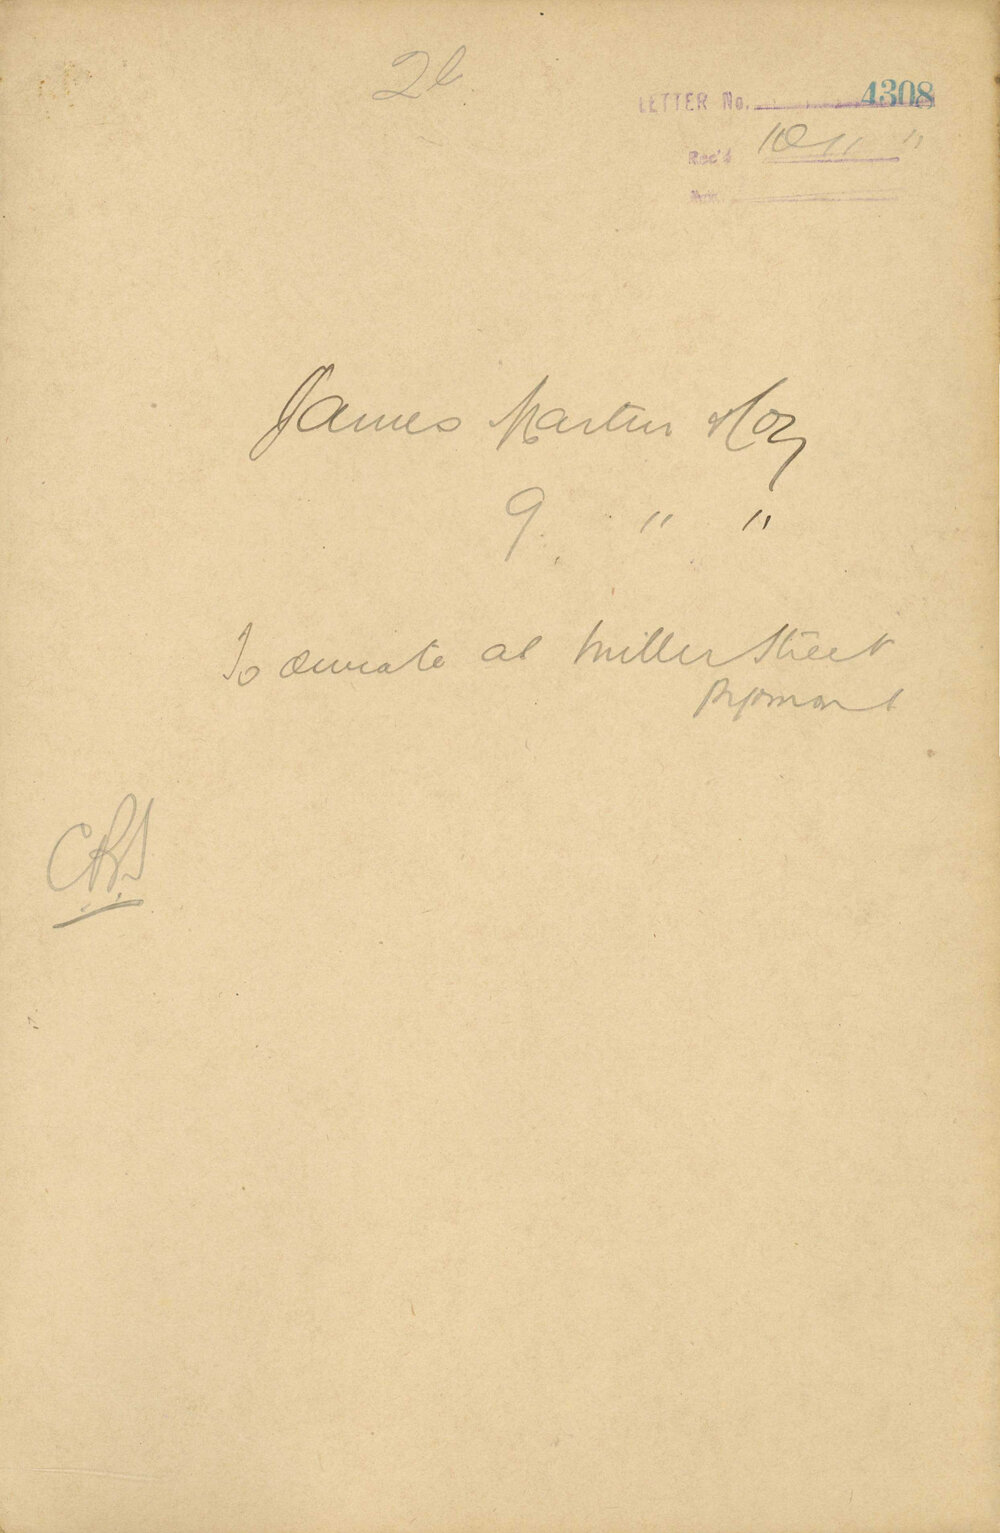 LETTER No. 4308
Rec'd 10 " "
James Martin & Coy
9. " "
To deviate at Miller Street
Pyrmont